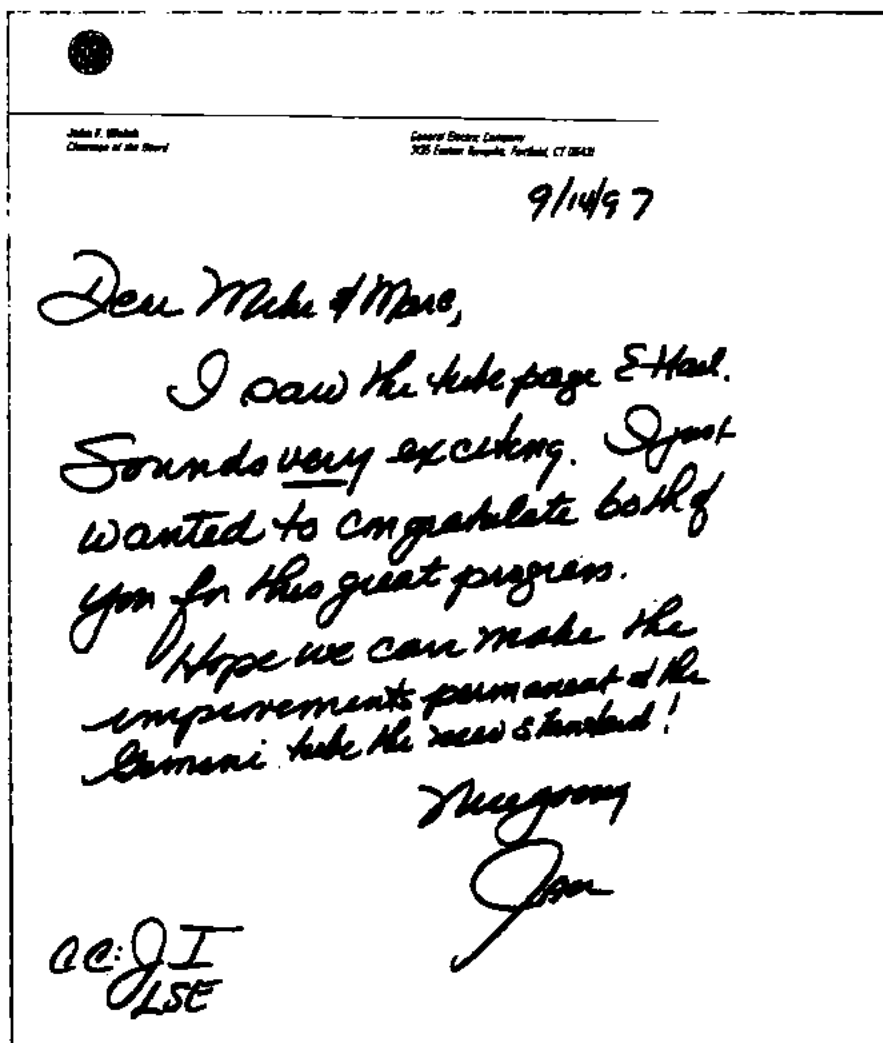 John F. Welch
Chairman of the Board
General Electric Company
3135 Easton Turnpike, Fairfield, CT 06431
9/14/97
Dear Mike & Marc,
I saw the tube page E-Mail.
Sounds very exciting. I just
wanted to congratulate both of
you for this great progress.
Hope we can make the
improvements permanent & the
Gemini tube the new standard!
Jack
CC: JI
LSE